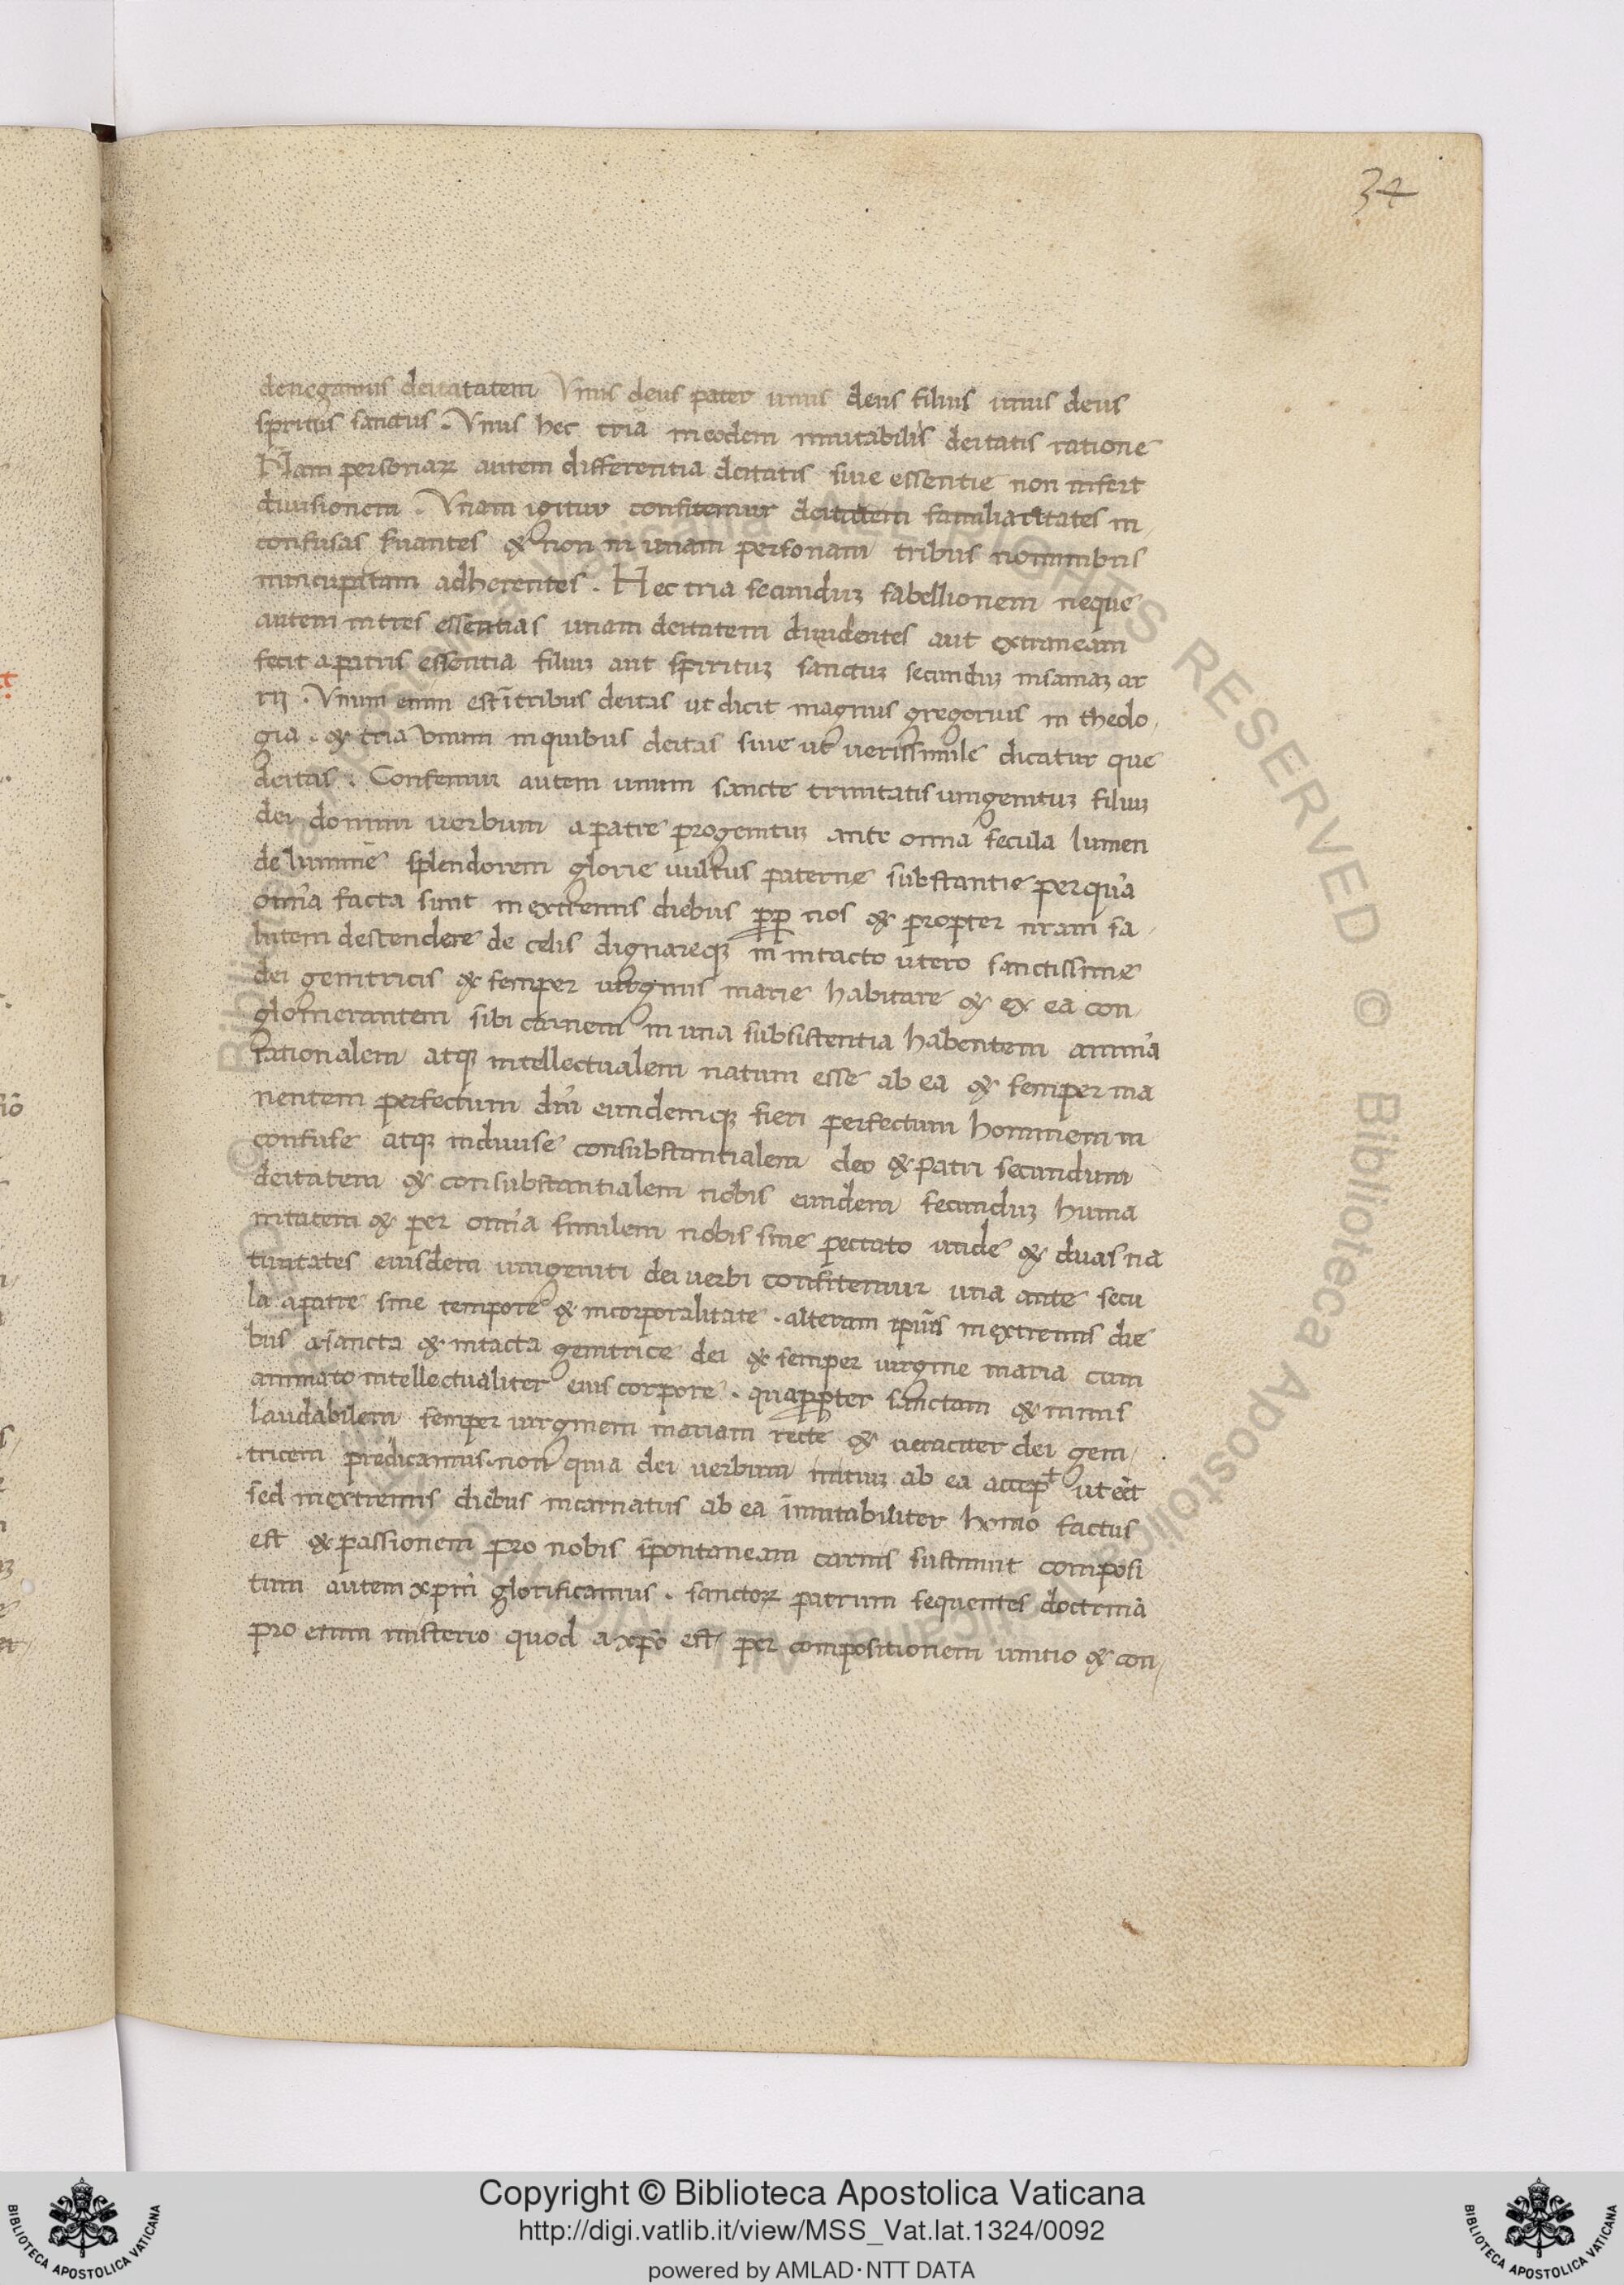 34
denegamus deitatatem Vnus deus pater unus deus filius unus deus
spiritus sanctus . Vnus hec tria in eodem inmutabilis deitatis ratione
Nam personarꝝ autem differentia deitatis siue essentie non infert
diuisionem . Vnam igitur confitemur deitatem familiaritates in
confusas s̄uantes & non in unam personam tribus nominibus
nuncupatam adherentes . Hec tria secunduꝫ sabellionem neque
autem in tres essentias unam deitatem diuidentes aut extraneam
fecit a patris essentia filiuꝫ aut spirituꝫ sanctuꝫ secunduꝫ insaniaꝫ ar
rij . Vnum enim est ī tribus deitas ut dicit magnus gregorius in theolo
gia . & tria vnum in quibus deitas siue ut uerissimile dicatur que
deitas . Confitemur autem unum sancte trinitatis unigenituꝫ filiuꝫ
dei domini uerbum a patre progenituꝫ ante om̄ia secula lumen
de lumine splendorem glorie uultus paterne substantie per quā
om̄ia facta sunt in extremis diebus ꝓꝑ nos & propter nr̄am sa
lutem descendere de celis dignareqꝫ in intacto utero sanctissime
dei genitricis & semper uirginis marie habitare & ex ea con
glomerantem sibi carnem in una subsistentia habentem animā
rationalem atqꝫ intellectualem natum esse ab ea & semper ma
nentem perfectum dm̄ eundemqꝫ fieri perfectum hominem in
confuse atqꝫ indiuise consubstantialem deo & patri secundum
deitatem & consubstantialem nobis eundem secunduꝫ huma
nitatem & per om̄ia similem nobis sine peccato unde & duas na
tiuitates eiusdem unigeniti dei uerbi confitemur una ante secu
la a patre sine tempore & incorporalitate . alteram ip̄ius in extremis die
bus a sancta & intacta genitrice dei & semper uirgine maria cum
animato intellectualiter eius corpore . quapropter sanctam & nimis
laudabilem semper uirginem mariam recte & ueraciter dei geni
tricem predicamus . non quia dei uerbum initiuꝫ ab ea accep̄t ut eēt
sed in extremis diebus incarnatus ab ea īmutabiliter homo factus
est & passionem pro nobis spontaneam carnis sustinuit composi
tum autem xp̄m glorificamus . sanctorꝝ patrum sequentes doctrinā
pro enim misterio quod a xp̄o est per compositionem unitio & con
Copyright © Biblioteca Apostolica Vaticana
http://digi.vatlib.it/view/MSS_Vat.lat.1324/0092
powered by AMLAD·NTT DATA
BIBLIOTECA APOSTOLICA VATICANA
BIBLIOTECA APOSTOLICA VATICANA